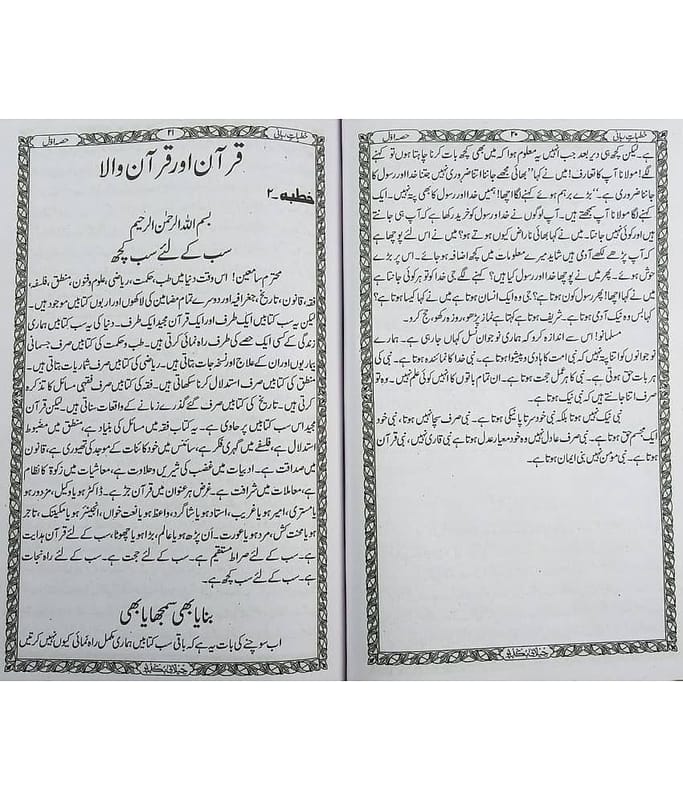 خطبات ربانی ۲۰ حصہ اوّل
ہے۔ لیکن کچھ ہی دیر بعد جب انہیں یہ معلوم ہوا کہ میں بھی کچھ بات کرنا چاہتا ہوں تو کہنے
لگے! مولانا آپ کا تعارف! میں نے کہا ”بھائی مجھے جاننا اتنا ضروری نہیں جتنا خدا اور رسول کا
جاننا ضروری ہے۔“ بڑے برہم ہوئے کہنے لگا اچھا! ہمیں خدا اور رسول کا بھی پتہ نہیں۔ ایک
کہنے لگا مولانا آپ سمجھتے ہیں۔ آپ لوگوں نے خدا و رسول کو خرید رکھا ہے کہ آپ ہی جانتے
ہیں اور کوئی نہیں جانتا۔ میں نے کہا بھائی ناراض کیوں ہوتے ہو؟ میں نے اس لئے پوچھا ہے
کہ آپ پڑھے لکھے آدمی ہیں شاید میرے معلومات میں کچھ اضافہ ہو جائے۔ اس پر بڑے
خوش ہوئے۔ پھر میں نے پوچھا خدا اور رسول کیا ہیں؟ کہنے لگے جی خدا کو تو ہر کوئی جانتا ہے
میں نے کہا اچھا! پھر رسول کون ہوتا ہے؟ جی وہ ایک انسان ہوتا ہے میں نے کہا کیسا ہوتا ہے؟
کہا بس وہ نیک آدمی ہوتا ہے۔ شریف ہوتا ہے کہتا ہے نماز پڑھو، روزہ رکھو، حج کرو۔
مسلمانو! اس سے اندازہ کرو کہ ہماری نوجوان نسل کہاں جا رہی ہے۔ ہمارے
نوجوانوں کو اتنا پتہ نہیں کہ نبی امت کا ہادی و پیشوا ہوتا ہے۔ نبی خدا کا نمائندہ ہوتا ہے۔ نبی کی
ہر بات حق ہوتی ہے۔ نبی کا ہر عمل حجت ہوتا ہے۔ ان تمام باتوں کا انہیں کوئی علم نہیں۔ وہ تو
صرف اتنا جانتے ہیں کہ نبی نیک ہوتا ہے۔
نبی نیک نہیں ہوتا بلکہ نبی خود سرتاپا نیکی ہوتا ہے۔ نبی صرف سچا نہیں ہوتا، نبی خود
ایک مجسم حق ہوتا ہے۔ نبی صرف عادل نہیں وہ خود معیار عدل ہوتا ہے نبی قاری نہیں، نبی قرآن
ہوتا ہے۔ نبی مومن نہیں نبی ایمان ہوتا ہے۔
خطبات ربانی ۲۱ حصہ اوّل
قرآن اور قرآن والا
خطبہ ۔ ۲
بسم اللہ الرحمٰن الرحیم
سب کے لئے سب کچھ
محترم سامعین! اس وقت دنیا میں طب، حکمت، ریاضی، علوم و فنون، منطق، فلسفہ،
فقہ، قانون، تاریخ، جغرافیہ اور دوسرے تمام مضامین کی لاکھوں اور اربوں کتابیں موجود ہیں۔
لیکن یہ سب کتابیں ایک طرف اور ایک قرآن مجید ایک طرف۔ دنیا کی یہ سب کتابیں ہماری
زندگی کے کسی ایک حصے کی طرف راہ نمائی کرتی ہیں۔ طب و حکمت کی کتابیں صرف جسمانی
بیماریوں اور ان کے علاج اور نسخہ جات بتاتی ہیں۔ ریاضی کی کتابیں صرف شماریات بتاتی ہیں۔
منطق کی کتابیں صرف استدلال کرنا سکھاتی ہیں۔ فقہ کی کتابیں صرف فقہی مسائل کا تذکرہ
کرتی ہیں۔ تاریخ کی کتابیں صرف گئے گذرے زمانے کے واقعات سناتی ہیں۔ لیکن قرآن
مجید اس سب کتابیں پر حاوی ہے۔ یہ کتاب فقہ میں مسائل کی بنیاد ہے، منطق میں مضبوط
استدلال ہے، فلسفے میں گہری فکر ہے، سائنس میں خود کائنات کے موجد کی تھیوری ہے، قانون
میں صداقت ہے۔ ادبیات میں غضب کی شیریں و حلاوت ہے، معاشیات میں زکوٰۃ کا نظام
ہے، معاملات میں شرافت ہے۔ غرض ہر عنوان میں قرآن جڑ ہے۔ ڈاکٹر ہو یا وکیل، مزدور ہو
یا مستری، امیر ہو یا غریب، استاد ہو یا شاگرد، واعظ ہو یا نعت خواں، انجینئر ہو یا مکینک، تاجر
ہو یا محنت کش، مرد ہو یا عورت۔ اَن پڑھ ہو یا عالم، بڑا ہو یا چھوٹا، سب کے لئے قرآن ہدایت
ہے۔ سب کے لئے صراط مستقیم ہے۔ سب کے لئے حجت ہے۔ سب کے لئے راہ نجات
ہے۔ سب کے لئے سب کچھ ہے۔
بنایا بھی سمجھایا بھی
اب سوچنے کی بات یہ ہے کہ باقی سب کتابیں ہماری مکمل راہ نمائی کیوں نہیں کرتیں